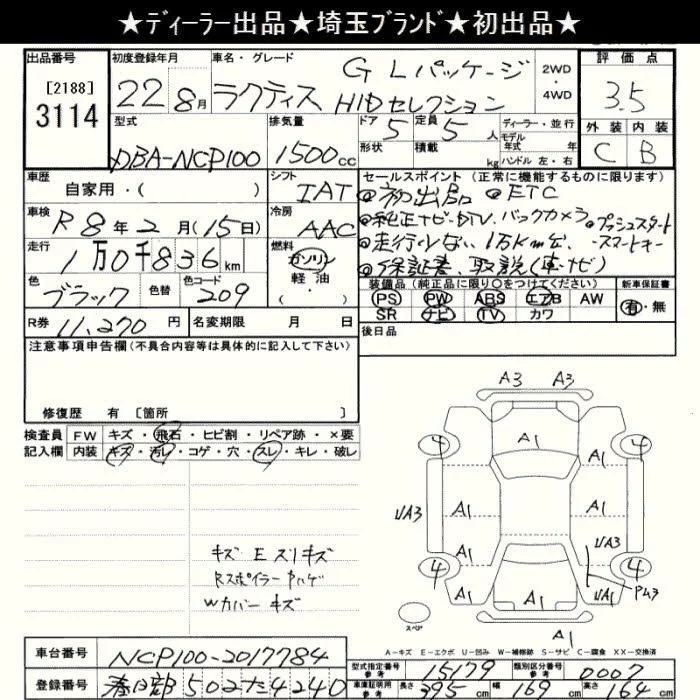 ★ディーラー出品★埼玉ブランド★初出品★
出品番号 初度登録年月 車名・グレード 評価点
[2188] 3114 22年8月 ラクティス G Lパッケージ HIDセレクション 2WD・4WD 3.5
型式 排気量 ドア 5 定員 5人 ディーラー・並行 外装 内装
DBA-NCP100 1500cc 形状 積載 kg モデル年式 年 ハンドル 左・右 C B
車歴 シフト セールスポイント (正常に機能するものに限ります)
自家用・( ) IAT ◎初出品 ◎ETC
車検 R8年2月(15日) 冷房 AAC ◎純正ナビ・DTV、バックカメラ ◎プッシュスタート
走行 1万0千836km 燃料 ガソリン・軽油・( ) ◎走行少ない、1万km台、・スマートキー
色 ブラック 色替 色コード 209 ◎保証書、取説(車・ナビ)
装備品 (純正品に限り〇をつけてください) 新車保証書
PS PW ABS エアB AW 有・無
SR ナビ TV カワ
R券 11,270円 名変期限 月 日 後日品
注意事項申告欄 (不具合内容等は具体的に記入して下さい)
修復歴 有 [箇所 ]
検査員 FW キズ・飛石・ヒビ割・リペア跡・×要
記入欄 内装 キズ・汚レ・コゲ・穴・スレ・キレ・破レ
キズ E スリキズ
Rスポイラー ハゲ
Wカバー キズ
A3 A3
4 A1 4
A1
A1 A1
UA3 A1 A1
A1 UA3
4 A1 A1 UA1 4 PM3
スペア A1
A-キズ E-エクボ U-凹み W-補修跡 S-サビ C-腐食 XX-交換済
車台番号 NCP100-2017784 型式指定番号 参考 15179 類別区分番号 参考 0007
登録番号 春日部 502 た 4240 車庫証明用 参考 長さ 395cm 幅 169cm 高さ 164cm